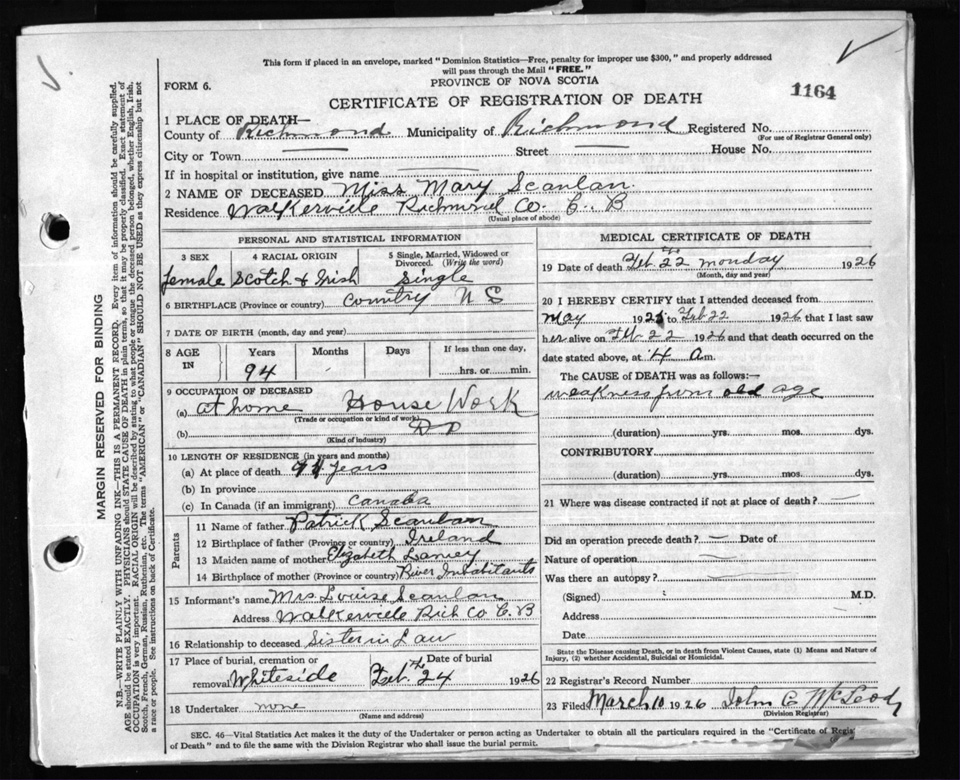 This form if placed in an envelope, marked "Dominion Statistics—Free, penalty for improper use $300," and properly addressed
will pass through the Mail "FREE."
FORM 6.
PROVINCE OF NOVA SCOTIA
1164
CERTIFICATE OF REGISTRATION OF DEATH
1 PLACE OF DEATH—
County of Richmond Municipality of Richmond Registered No.
(For use of Registrar General only)
City or Town — Street — House No.
If in hospital or institution, give name —
2 NAME OF DECEASED Miss Mary Scanlan
Residence Walkerville Richmond Co. C. B
(Usual place of abode)
PERSONAL AND STATISTICAL INFORMATION
3 SEX 4 RACIAL ORIGIN 5 Single, Married, Widowed or
Divorced. (Write the word)
female Scotch & Irish Single
6 BIRTHPLACE (Province or country) Country N S
7 DATE OF BIRTH (month, day and year)
8 AGE IN Years Months Days If less than one day,
94 hrs. or min.
9 OCCUPATION OF DECEASED
(a) at home House Work
(Trade or occupation or kind of work)
(b)
(Kind of industry)
10 LENGTH OF RESIDENCE (in years and months)
(a) At place of death 94 years
(b) In province
(c) In Canada (if an immigrant) Canada
Parents
11 Name of father Patrick Scanlan
12 Birthplace of father (Province or country) Ireland
13 Maiden name of mother Elizabeth Lamey
14 Birthplace of mother (Province or country) River Inhabitants
15 Informant's name Mrs Louise Scanlan
Address Walkerville Rich Co C. B
16 Relationship to deceased Sister in Law
17 Place of burial, cremation or Date of burial
removal Whiteside Feb. 24 the 1926
18 Undertaker none
(Name and address)
MEDICAL CERTIFICATE OF DEATH
19 Date of death Feb 22 Monday 1926
(Month, day and year)
20 I HEREBY CERTIFY that I attended deceased from
May 1925 to Feb 22 1926 that I last saw
her alive on Feb 22 1926 and that death occurred on the
date stated above, at 4 a.m.
The CAUSE of DEATH was as follows:—
weakness from old age
(duration) yrs. mos. dys.
CONTRIBUTORY
(duration) yrs. mos. dys.
21 Where was disease contracted if not at place of death? —
Did an operation precede death? — Date of
Nature of operation —
Was there an autopsy? —
(Signed) M.D.
Address
Date
State the Disease causing Death, or in death from Violent Causes, state (1) Means and Nature of
Injury, (2) whether Accidental, Suicidal or Homicidal.
22 Registrar's Record Number
23 Filed March 10 1926 John C McLeod
(Division Registrar)
SEC. 46—Vital Statistics Act makes it the duty of the Undertaker or person acting as Undertaker to obtain all the particulars required in the "Certificate of Regis
of Death" and to file the same with the Division Registrar who shall issue the burial permit.
MARGIN RESERVED FOR BINDING
N.B.—WRITE PLAINLY WITH UNFADING INK—THIS IS A PERMANENT RECORD. Every item of information should be carefully supplied.
AGE should be stated EXACTLY. PHYSICIANS should STATE CAUSE OF DEATH in plain terms, so that it may be properly classified. Exact statement of
OCCUPATION is very important. RACIAL ORIGIN will be described by stating to what people or tongue the deceased person belonged, whether English, Irish,
Scotch, French, German, Russian, Ruthenian, etc. The terms "AMERICAN" or "CANADIAN" SHOULD NOT BE USED as they express citizenship but not
a race or people. See instructions on back of Certificate.